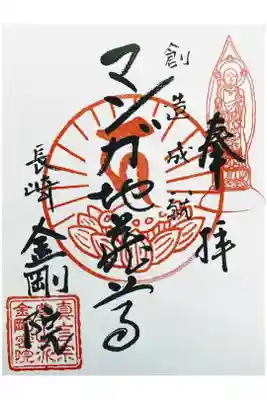 奉拝
創造成就
マンガ地蔵尊
長崎 金剛院
真言宗